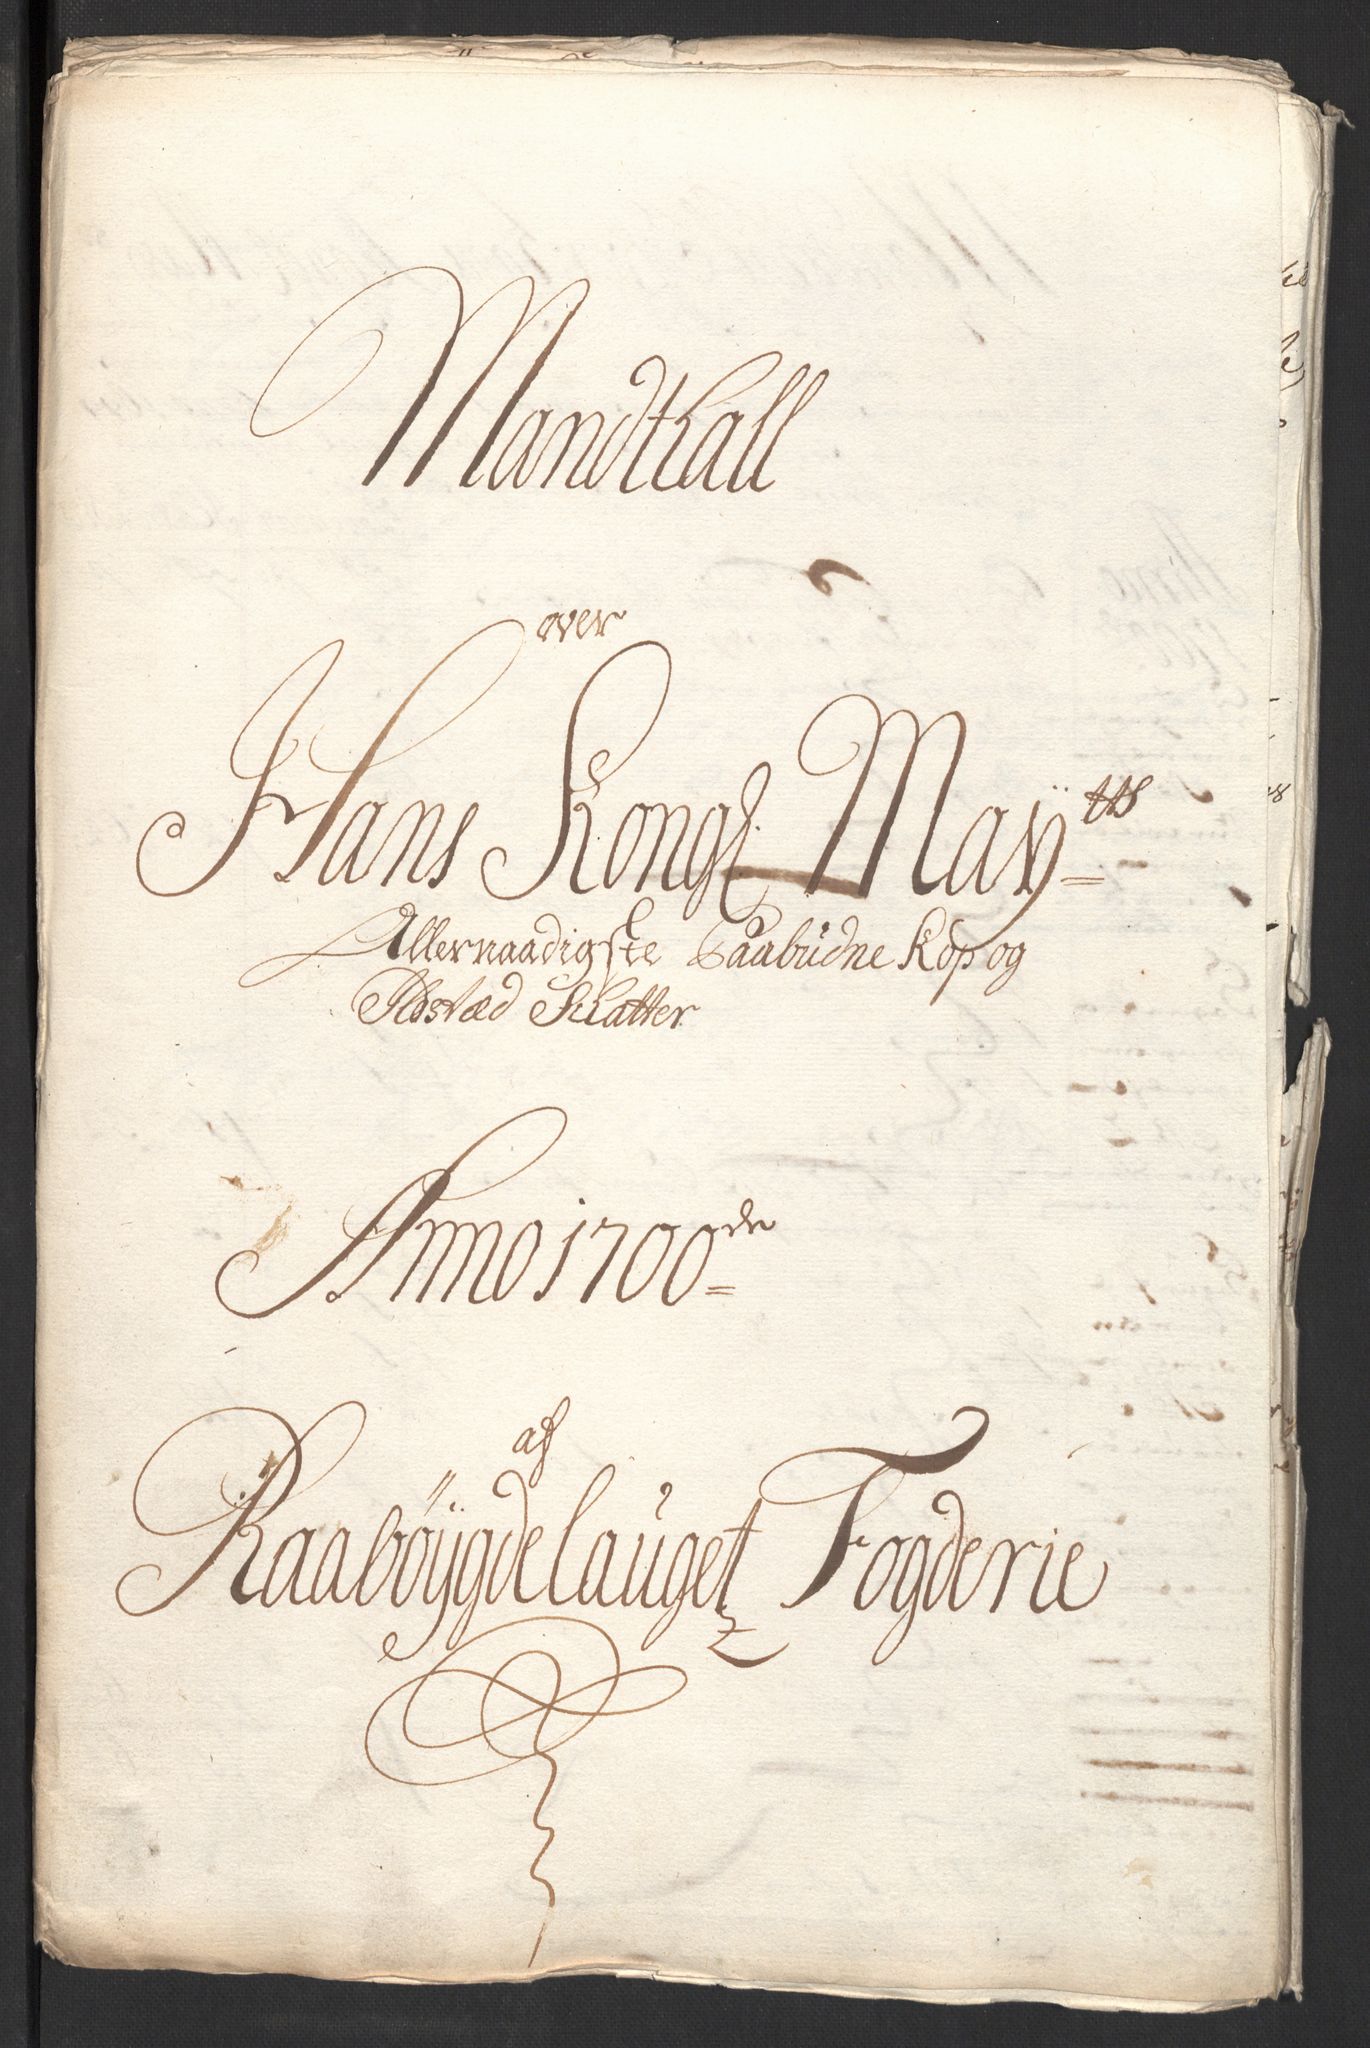 Mandtall
over
Hans Kongl. Maÿtts=
Allernaadigste Paabudne Kop og
Ildstæd Skatter
Anno 1700de=
af
Raabøÿgdelauget Fogderie